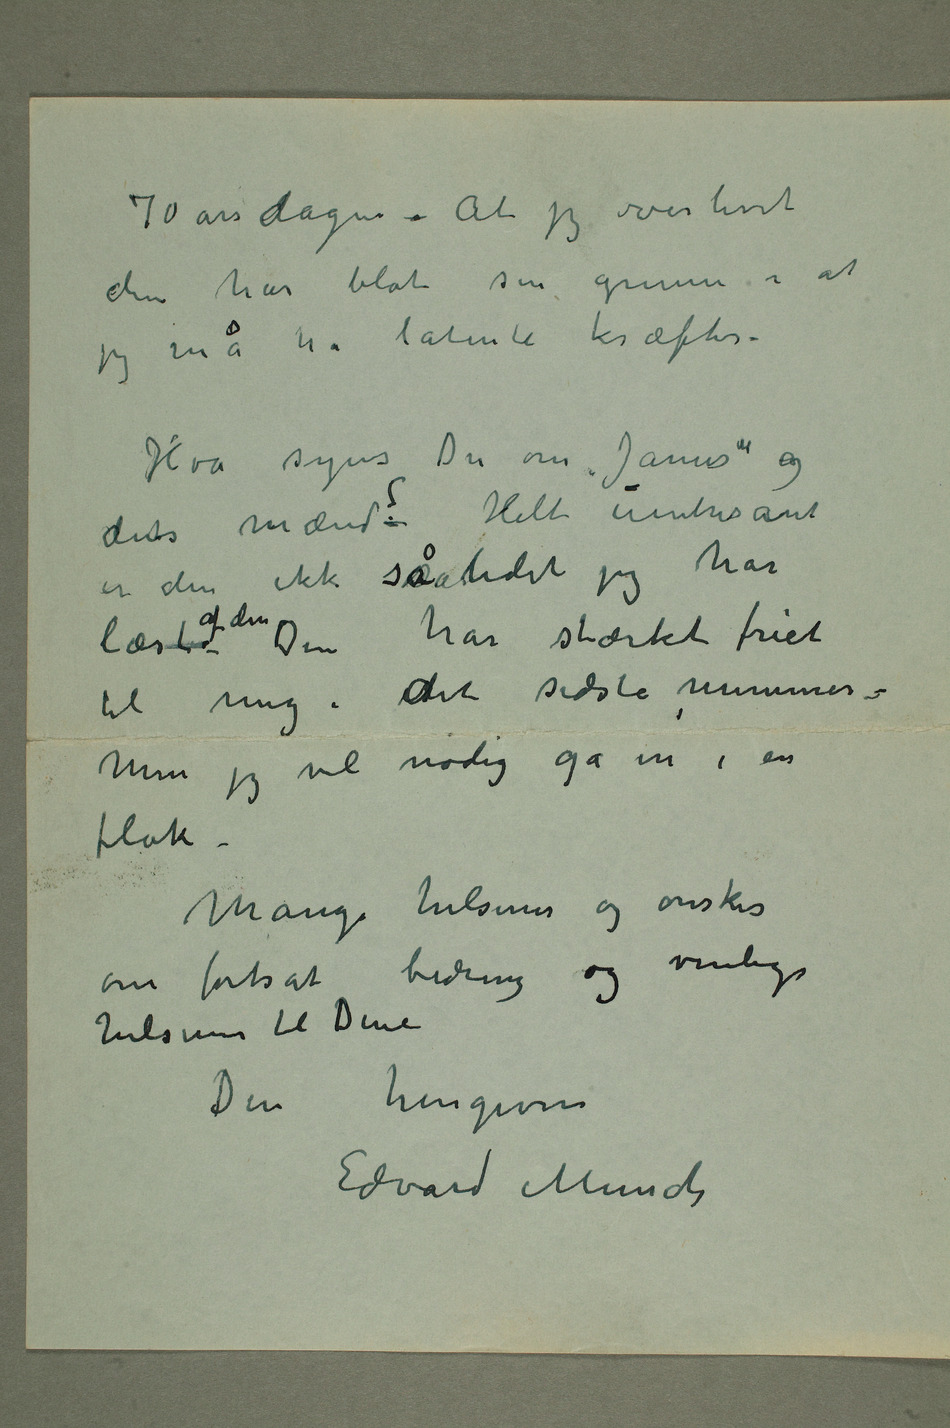 70 årsdagen. At jeg overlevet
den har blot sin grunn i at
jeg må ha latente kræfter.
Hva synes Du om „Janus" og
dets mænd? Helt uintresant
er den ikke såalidet jeg har
læst af den Den har stærkt friet
til mig i det sidste nummer –
Men jeg vil nødig gå in i en
flok –
Mange hilsener og ønsker
om fortsat bedring og venlige
hilsener til Dine
Din hengivne
Edvard Munch